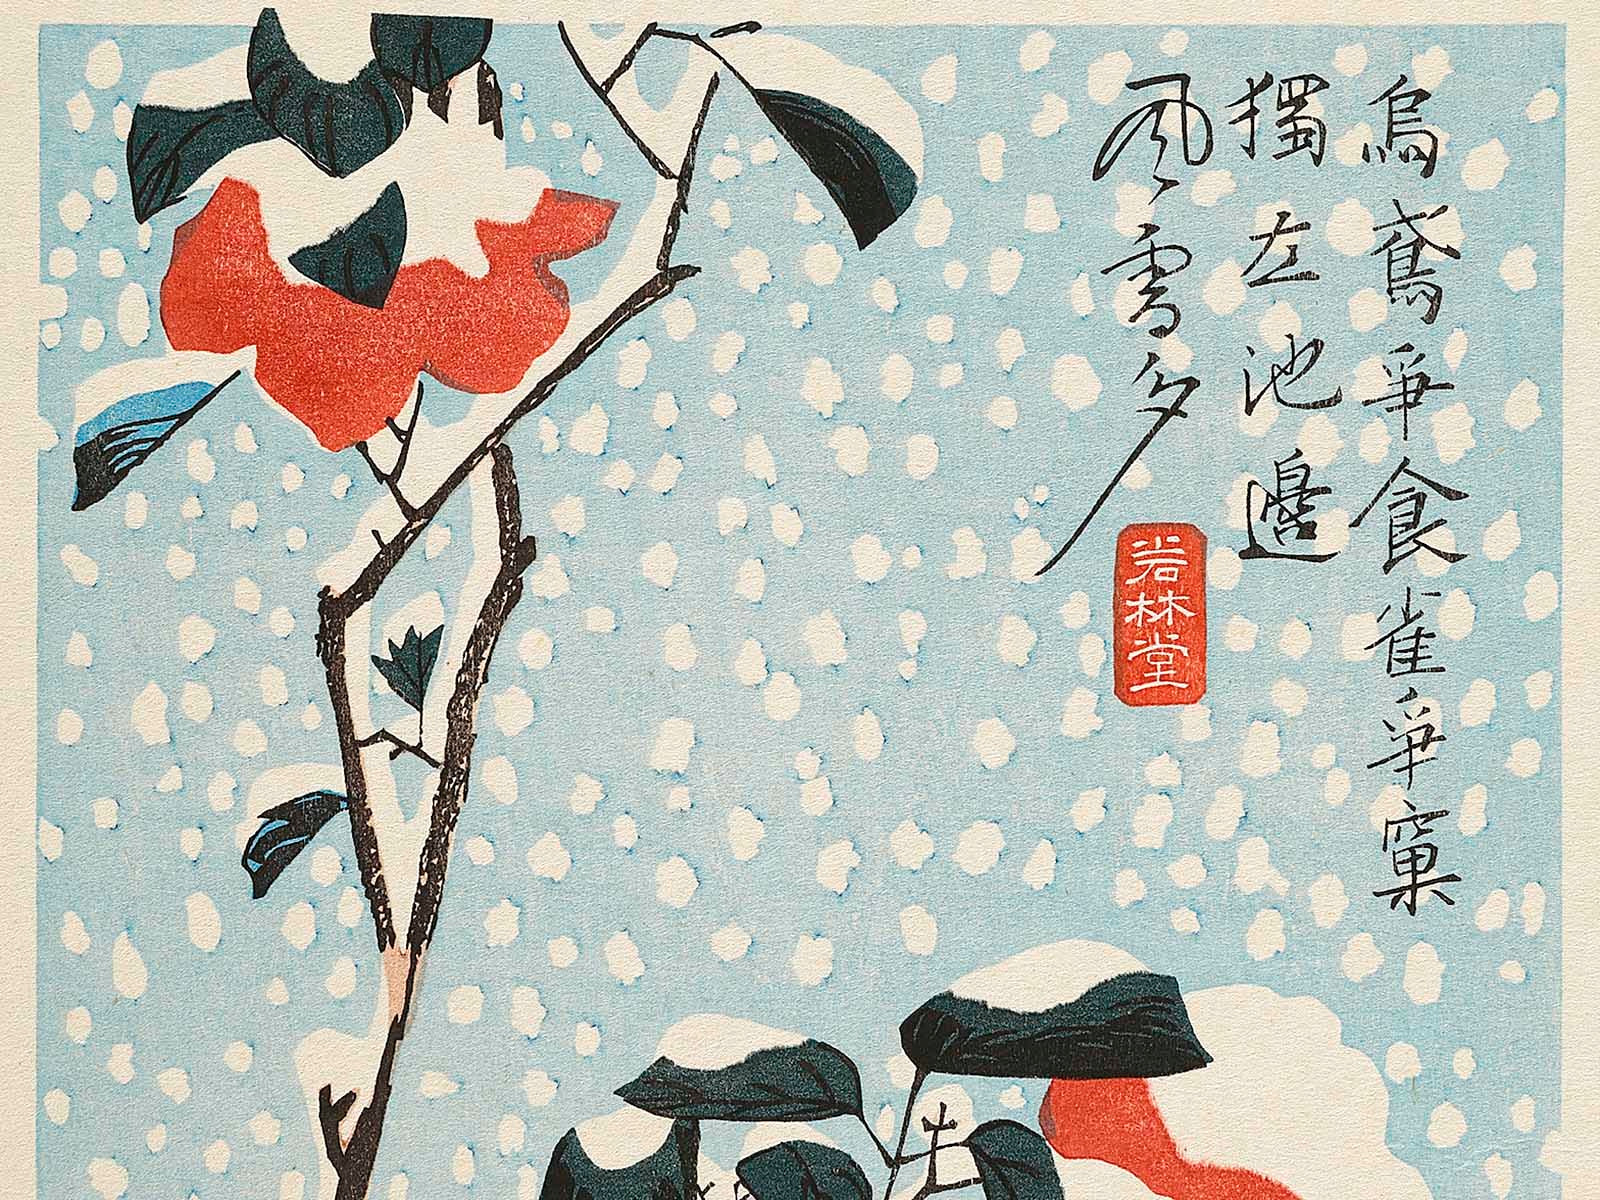 烏鳶爭食雀爭窠
獨立池邊
風雪多
岩林堂